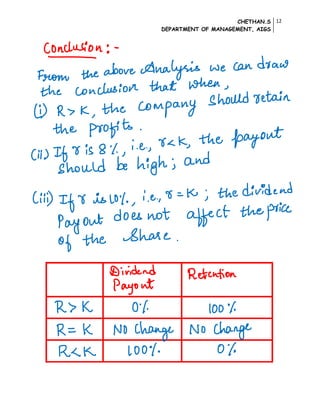 CHETHAN.S 12
DEPARTMENT OF MANAGEMENT, AIGS
Conclusion : -
From the above Analysis we can draw
the conclusion that when,
(i) R > K, the company should retain
the profits.
(ii) If r is 8%, i.e., r<k, the payout
should be high ; and
(iii) If r is 10%, i.e., r = K ; the dividend
Payout does not affect the price
of the Share.
Dividend Payout Retention
R > K 0% 100%
R = K No Change No Change
R < K 100% 0%